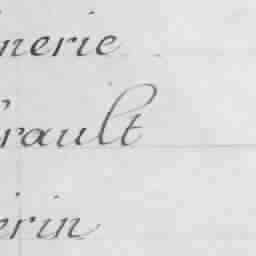 nerie
rault
erin